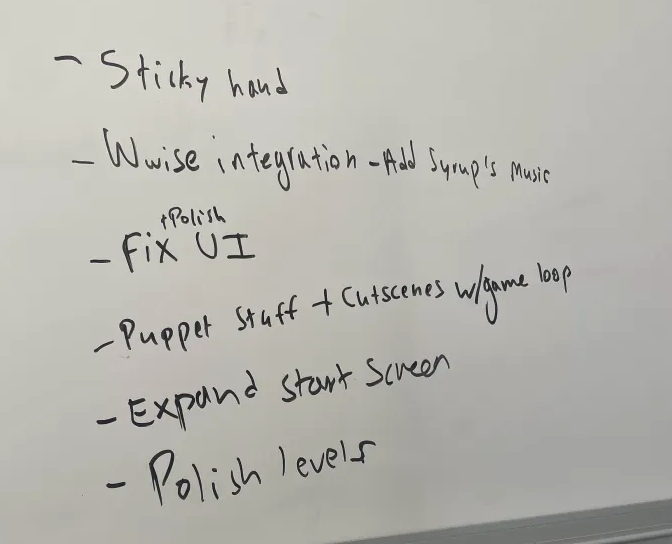 - Sticky hand
- Wwise integration - Add Syrup's Music
+Polish
- Fix UI
- Puppet stuff + Cutscenes w/game loop
- Expand start screen
- Polish levels